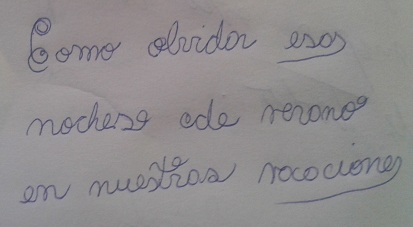 Como olvidar esas
noches de verano
en nuestras vacaciones